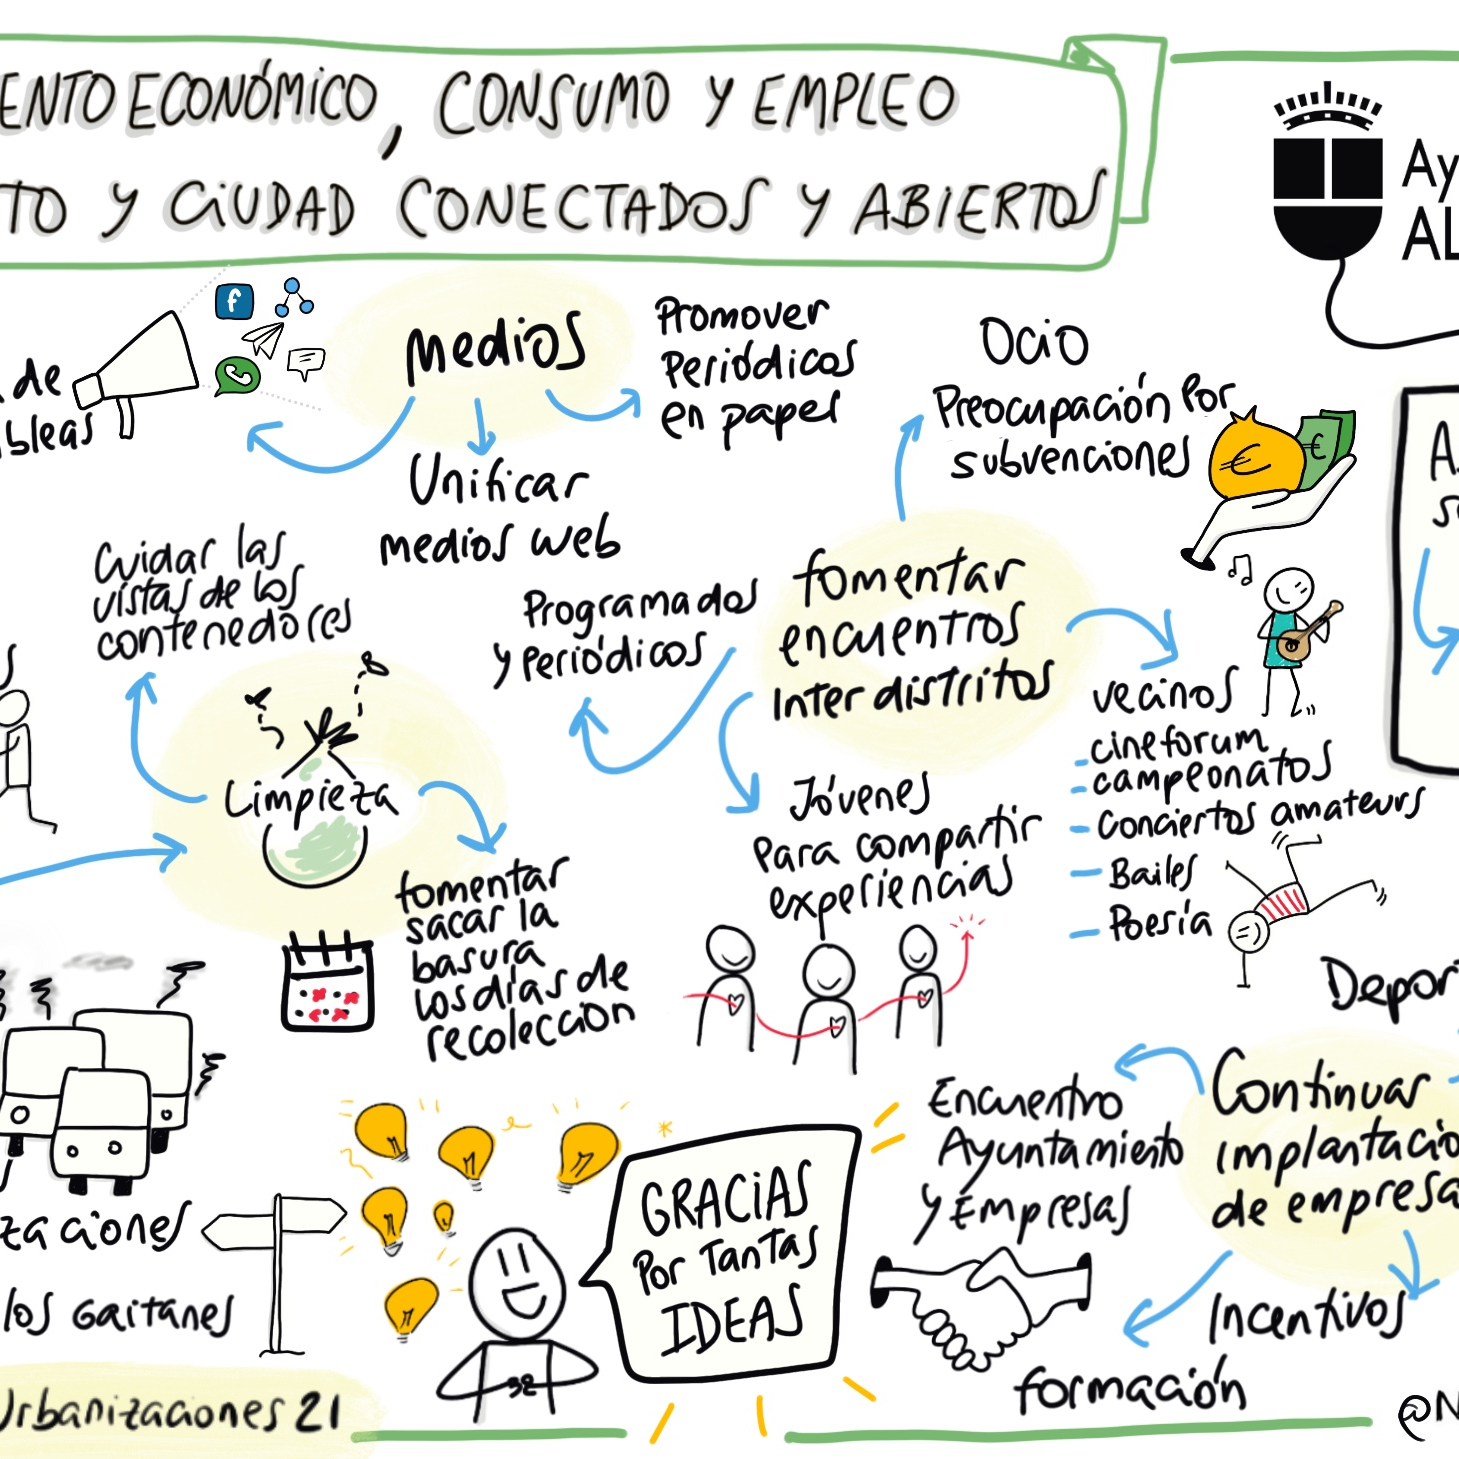 ENTO ECONÓMICO, CONSUMO Y EMPLEO
TO Y CIUDAD CONECTADOS Y ABIERTOS
Ay
AL
de
bleas
f
Medios
Promover
Periódicos
en papel
Unificar
medios web
Ocio
Preocupación por
subvenciones
€
€
Cuidar las
vistas de los
contenedores
Limpieza
fomentar
sacar la
basura
los días de
recolección
Programados
y Periódicos
fomentar
encuentros
Inter distritos
Jóvenes
Para compartir
experiencias
vecinos
- cineforum
- campeonatos
- Conciertos amateurs
- Bailes
- Poesía
Depor
Encuentro
Ayuntamiento
y Empresas
Continuar
implantacio
de empresa
Incentivos
formación
zaciones
los Gaitanes
Urbanizaciones 21
GRACIAS
Por Tantas
IDEAS
@N